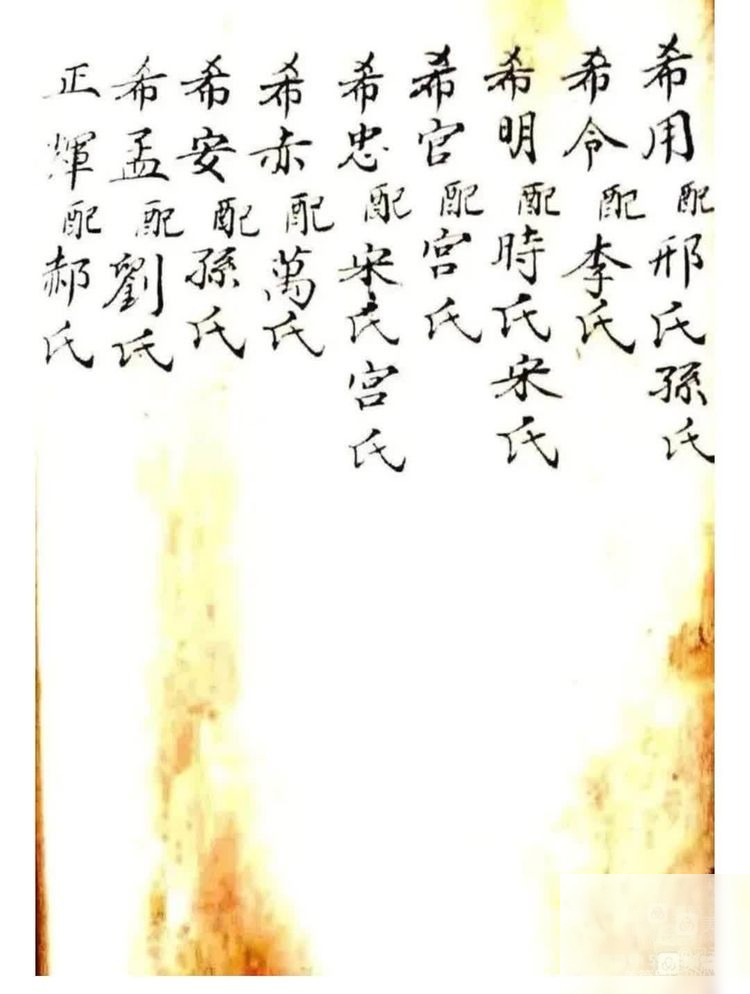 希用配邢氏孫氏
希令配李氏
希明配時氏宋氏
希官配宫氏
希忠配宋氏宫氏
希赤配萬氏
希安配孫氏
希孟配劉氏
正輝配郝氏